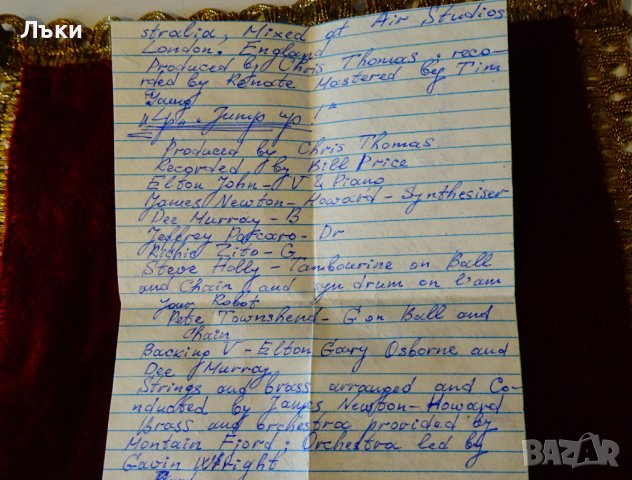 Лъки
stralia, Mixed at Air Studios
London, England
Produced by Chris Thomas, reco-
rded by Renate Mastered by Tim
Young
"Jump up!"
Produced by Chris Thomas
Recorded by Bill Price
Elton John - V & Piano
James Newton-Howard - Synthesiser
Dee Murray - B
Jeffrey Porcaro - Dr
Richie Zito - G
Steve Holly - Tambourine on Ball
and Chain, and syn drum on I am
Your Robot
Pete Townshend - G on Ball and
Chain
Backing V - Elton Gary Osborne and
Dee Murray
Strings and brass arranged and Co-
nducted by James Newton-Howard
Brass and orchestra provided by
Montain Fiord; Orchestra led by
Gavin Wright
BAZAR.BG